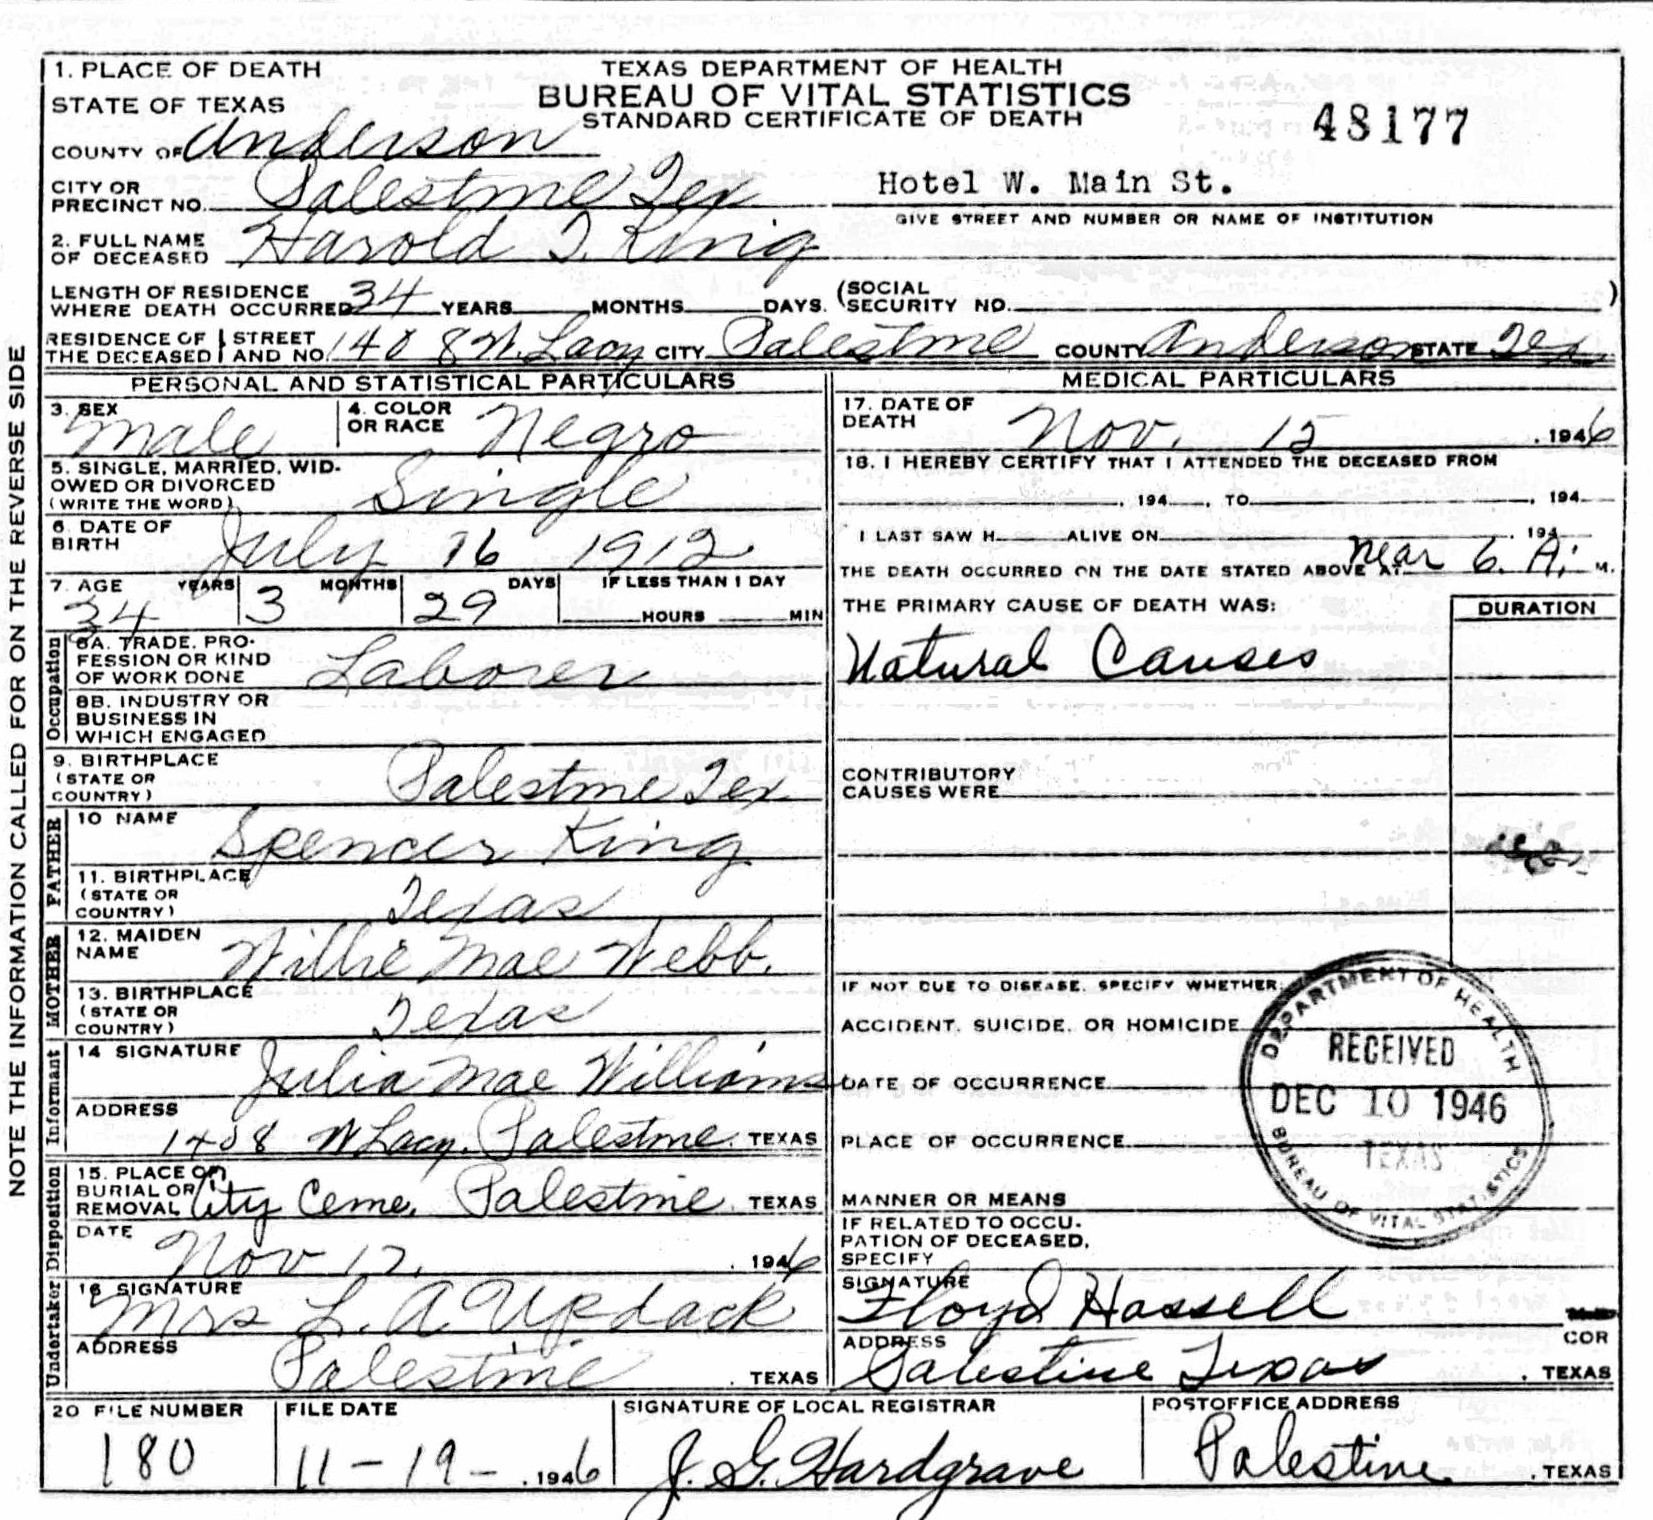 NOTE THE INFORMATION CALLED FOR ON THE REVERSE SIDE
1. PLACE OF DEATH
STATE OF TEXAS
TEXAS DEPARTMENT OF HEALTH
BUREAU OF VITAL STATISTICS
STANDARD CERTIFICATE OF DEATH
48177
COUNTY OF Anderson
CITY OR PRECINCT NO. Palestine Tex
Hotel W. Main St.
GIVE STREET AND NUMBER OR NAME OF INSTITUTION
2. FULL NAME OF DECEASED Harold J. King
LENGTH OF RESIDENCE WHERE DEATH OCCURRED 34 YEARS MONTHS DAYS. (SOCIAL SECURITY NO. )
RESIDENCE OF THE DECEASED STREET AND NO. 1408 W. Lacy CITY Palestine COUNTY Anderson STATE Tex
PERSONAL AND STATISTICAL PARTICULARS
3. SEX Male
4. COLOR OR RACE Negro
5. SINGLE, MARRIED, WIDOWED OR DIVORCED (WRITE THE WORD) Single
6. DATE OF BIRTH July 16 1912
7. AGE 34 YEARS 3 MONTHS 29 DAYS IF LESS THAN 1 DAY HOURS MIN
Occupation
8A. TRADE, PROFESSION OR KIND OF WORK DONE Laborer
8B. INDUSTRY OR BUSINESS IN WHICH ENGAGED
9. BIRTHPLACE (STATE OR COUNTRY) Palestine Tex
FATHER
10 NAME Spencer King
11. BIRTHPLACE (STATE OR COUNTRY) Texas
MOTHER
12. MAIDEN NAME Willie Mae Webb.
13. BIRTHPLACE (STATE OR COUNTRY) Texas
Informant
14 SIGNATURE Julia Mae Williams
ADDRESS 1408 W Lacy. Palestine. TEXAS
Disposition
15. PLACE OF BURIAL OR REMOVAL City Ceme. Palestine TEXAS
DATE Nov 17, 1946
Undertaker
16 SIGNATURE Mrs L. A. Updack
ADDRESS Palestine . TEXAS
MEDICAL PARTICULARS
17. DATE OF DEATH Nov. 15 . 1946
18. I HEREBY CERTIFY THAT I ATTENDED THE DECEASED FROM
, 194 , TO , 194
I LAST SAW H ALIVE ON , 194
THE DEATH OCCURRED ON THE DATE STATED ABOVE AT near 6. A. M.
THE PRIMARY CAUSE OF DEATH WAS: DURATION
Natural Causes
CONTRIBUTORY CAUSES WERE
IF NOT DUE TO DISEASE, SPECIFY WHETHER:
ACCIDENT, SUICIDE, OR HOMICIDE
DATE OF OCCURRENCE
PLACE OF OCCURRENCE
MANNER OR MEANS
IF RELATED TO OCCUPATION OF DECEASED, SPECIFY
DEPARTMENT OF HEALTH
RECEIVED
DEC 10 1946
TEXAS
BUREAU OF VITAL STATISTICS
SIGNATURE Floyd Hassell COR
ADDRESS Palestine Texas . TEXAS
20 FILE NUMBER 180
FILE DATE 11-19- , 1946
SIGNATURE OF LOCAL REGISTRAR J. G. Hardgrave
POSTOFFICE ADDRESS Palestine . TEXAS